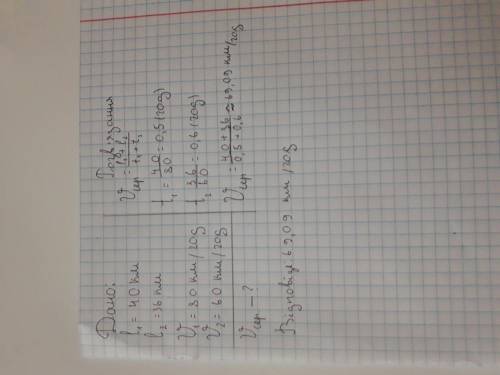 Дано:
l₁ = 40 км
l₂ = 36 км
V₁ = 80 км/год
V₂ = 60 км/год
Vсер — ?
Розв'язання
Vсер = l₁ + l₂ / t₁ + t₂
t₁ = 40/80 = 0,5 (год)
t₂ = 36/60 = 0,6 (год)
Vсер = 40 + 36 / 0,5 + 0,6 ≈ 69,09 км/год
Відповідь: 69,09 км/год